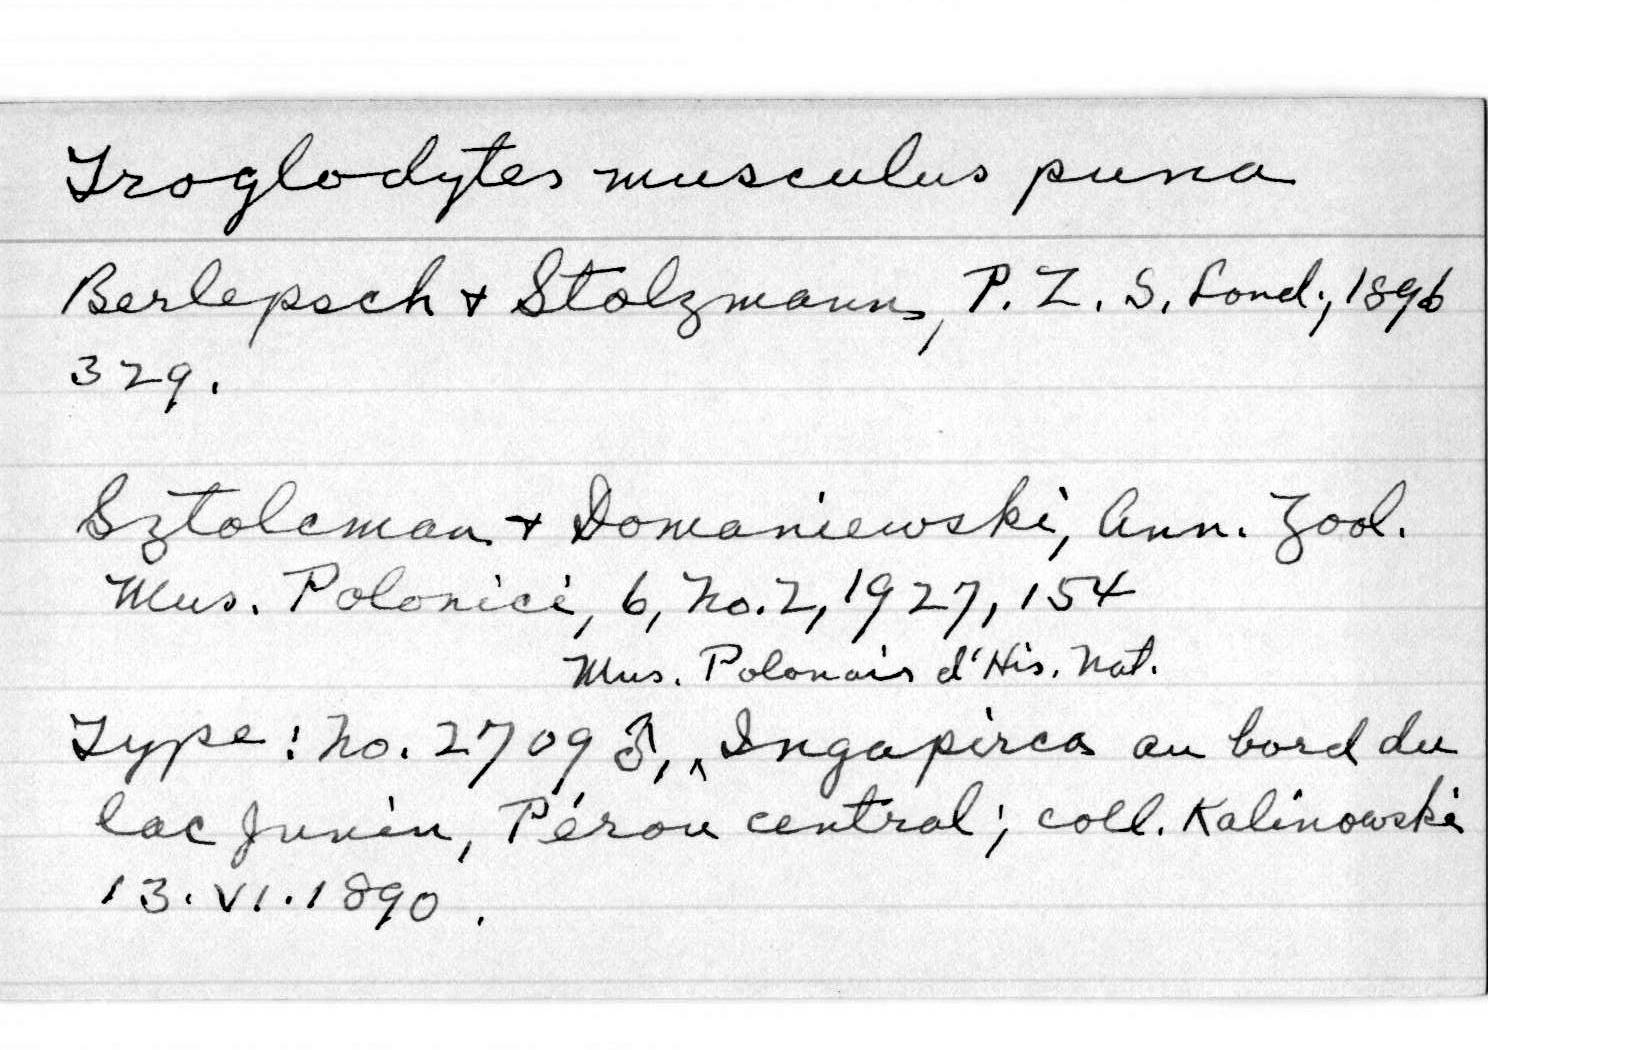 Troglodytes musculus puna
Berlepsch & Stolzmann, P. Z. S. Lond., 1896
329.
Sztolcman & Domaniewski, Ann. Zool.
Mus. Polonici, 6, No. 2, 1927, 154
Mus. Polonais d'His. Nat.
Type: No. 2709 ♂, ^ Ingapirca au bord du
lac Junin, Pérou central; coll. Kalinowski
13.VI.1890.